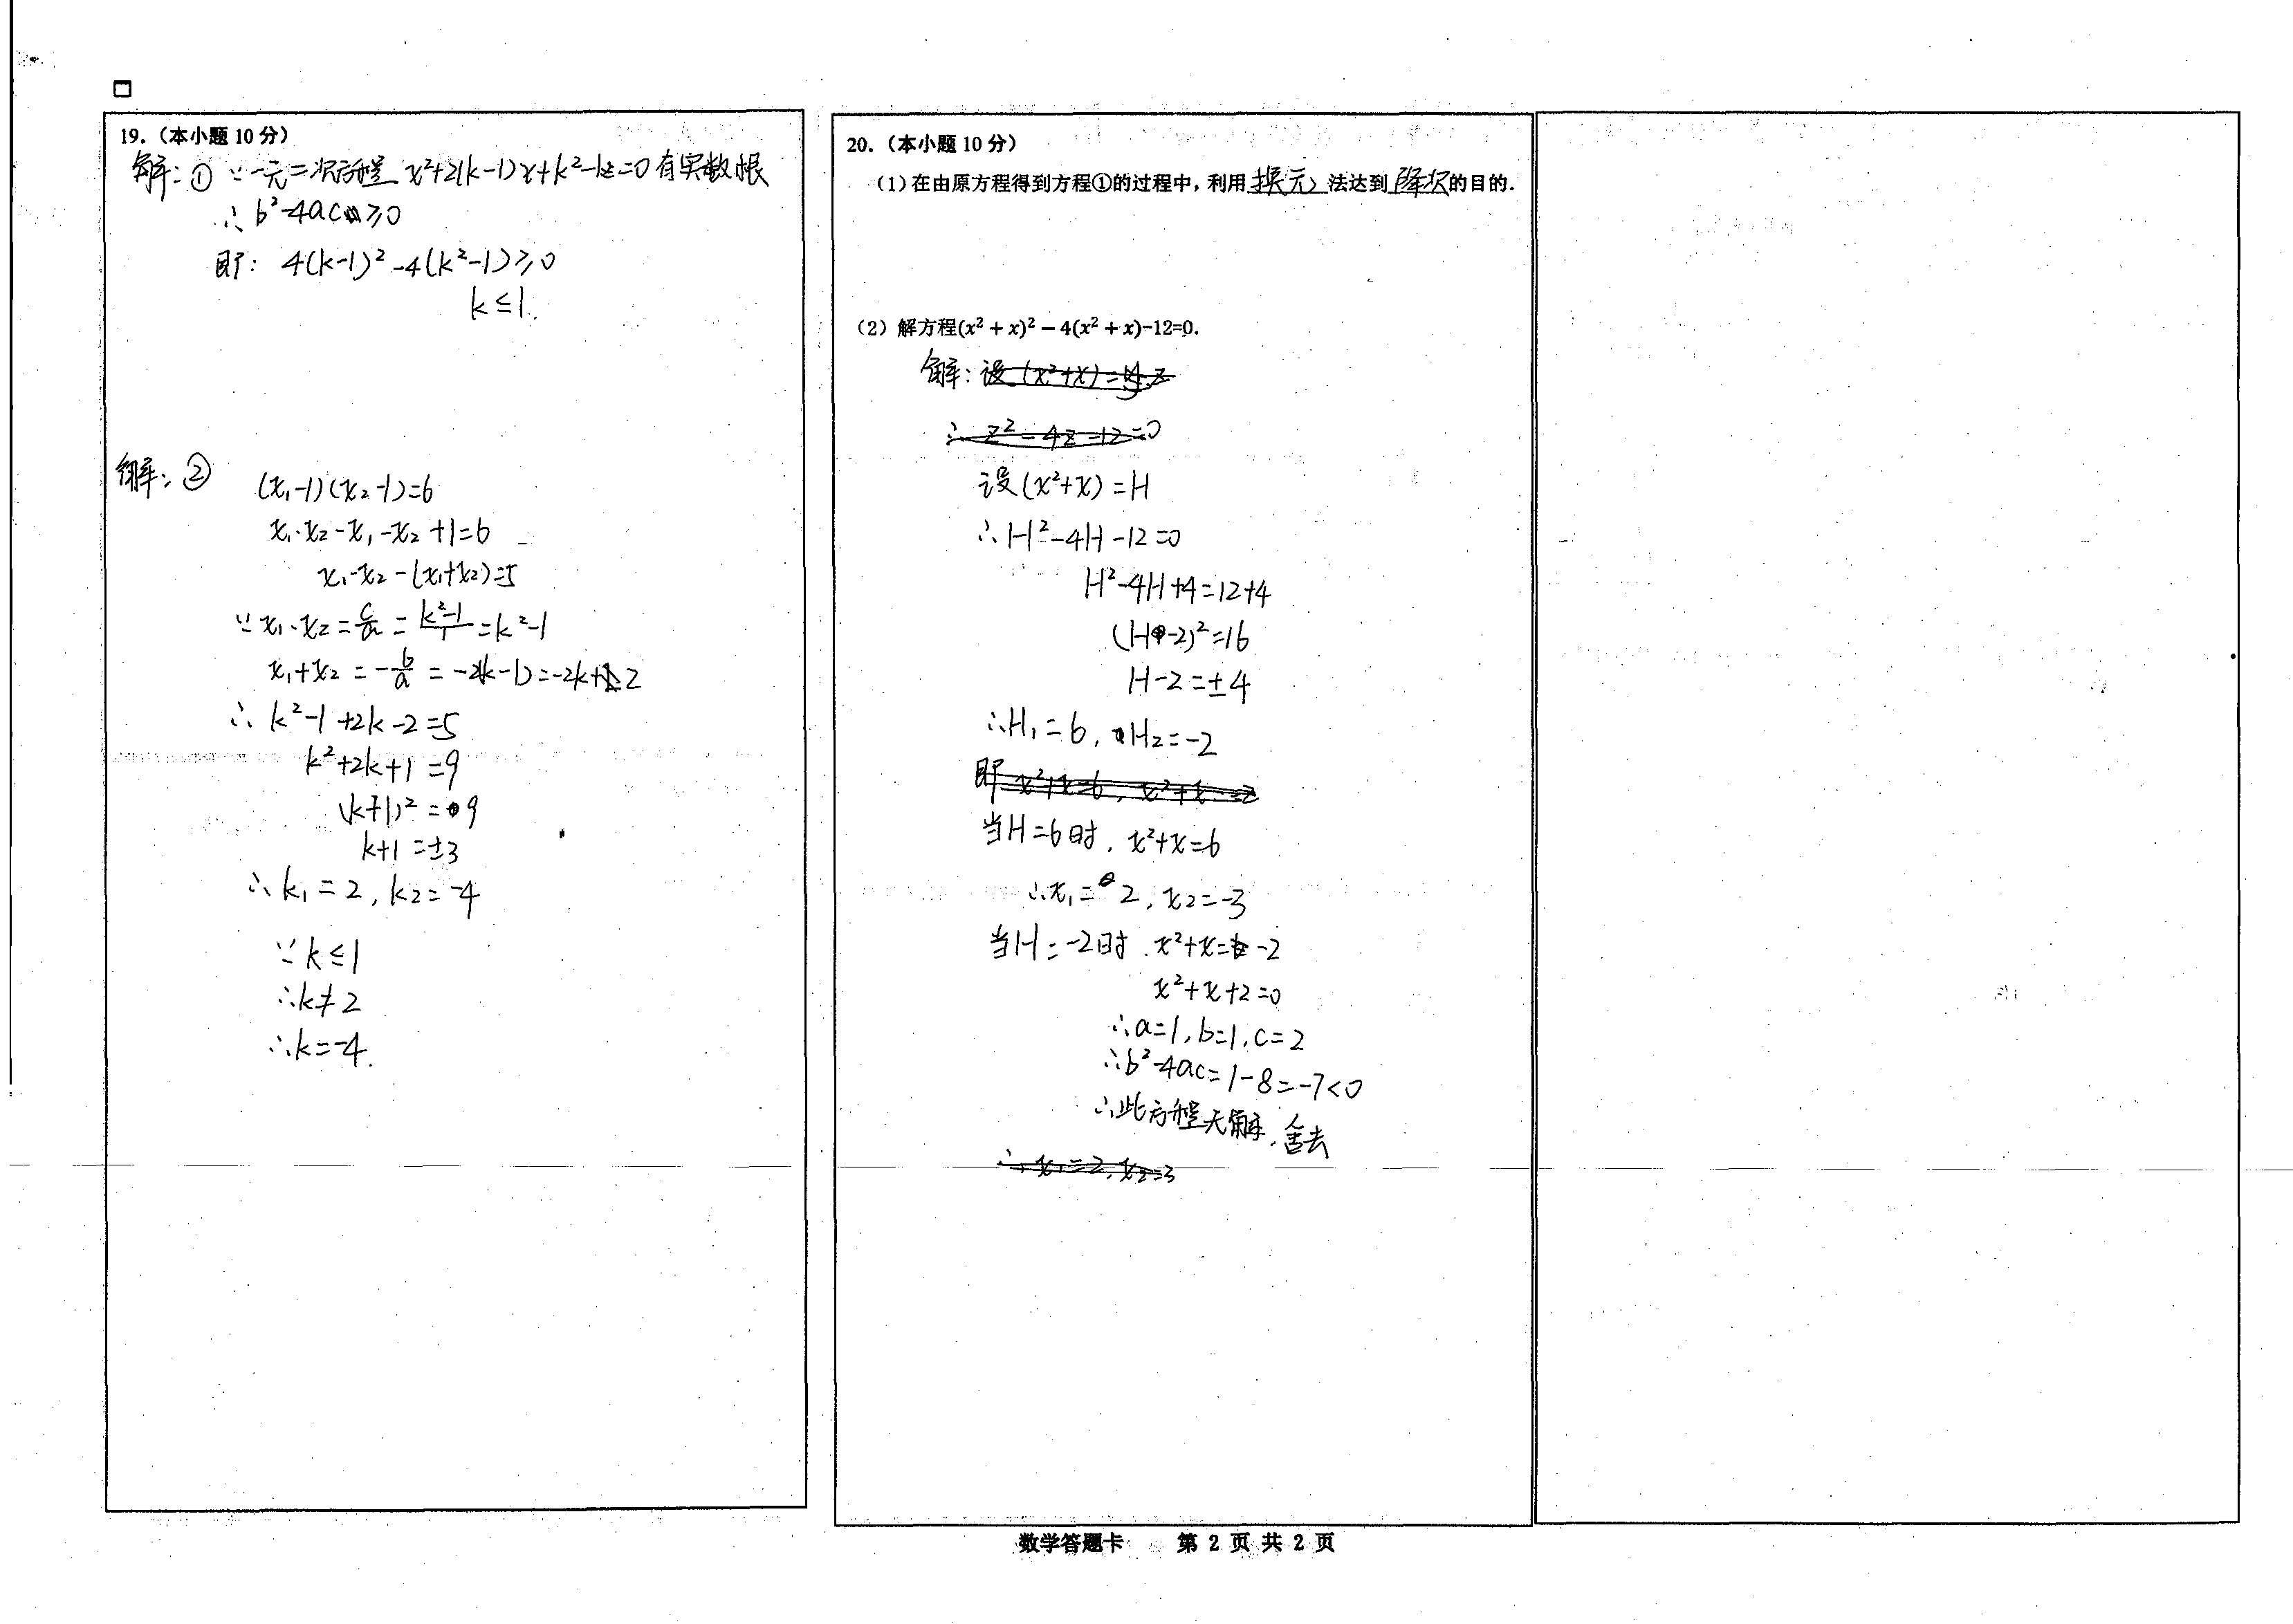 19.（本小题 10 分）
解：① ∵一元二次方程 x²+2(k-1)x+k²-1=0 有实数根
∴ b²-4ac≥0
即： 4(k-1)²-4(k²-1)≥0
k≤1.
解：②
(x₁-1)(x₂-1)=6
x₁·x₂-x₁-x₂+1=6
x₁·x₂-(x₁+x₂)=5
∵x₁·x₂=c/a=(k²-1)/1=k²-1
x₁+x₂=-b/a=-2(k-1)=-2k+2
∴ k²-1+2k-2=5
k²+2k+1=9
(k+1)²=9
k+1=±3
∴k₁=2, k₂=-4
∵k≤1
∴k≠2
∴k=-4.
20.（本小题 10 分）
（1）在由原方程得到方程①的过程中，利用 换元 法达到 降次 的目的.
（2）解方程(x² + x)² − 4(x² + x)-12=0.
解：设(x²+x)=
∴ z²-4z-12=0
设(x²+x)=H
∴H²-4H-12=0
H²-4H+4=12+4
(H-2)²=16
H-2=±4
∴H₁=6, H₂=-2
即 x²+x=6, x²+x=-2
当H=6时, x²+x=6
∴x₁=2, x₂=-3
当H=-2时. x²+x=-2
x²+x+2=0
∴a=1,b=1,c=2
∴b²-4ac=1-8=-7<0
∴此方程无解,舍去
∴x₁=2,x₂=3
数学答题卡 第 2 页 共 2 页